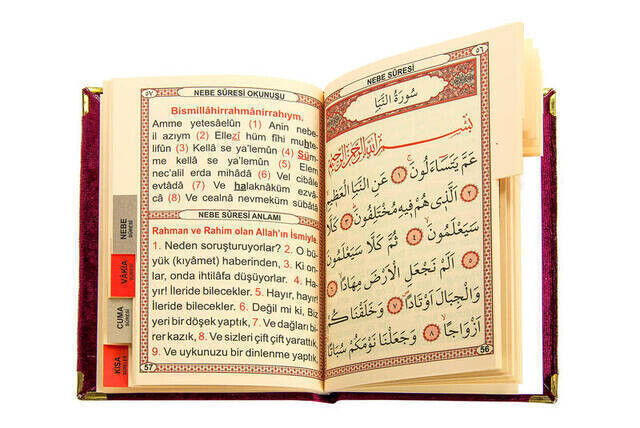 ٥٦
NEBE SÛRESİ
سُورَةُ النَّبَأِ
بِسْمِ اللّٰهِ الرَّحْمٰنِ الرَّحِيمِ
عَمَّ يَتَسَاءَلُونَ ﴿١﴾ عَنِ النَّبَاِ الْعَظِيمِ
اَلَّذِي هُمْ فِيهِ مُخْتَلِفُونَ ﴿٣﴾ كَلَّا
سَيَعْلَمُونَ ﴿٤﴾ ثُمَّ كَلَّا سَيَعْلَمُونَ
﴿٥﴾ اَلَمْ نَجْعَلِ الْاَرْضَ مِهَادًا
وَالْجِبَالَ اَوْتَادًا ﴿٧﴾ وَخَلَقْنَاكُمْ
اَزْوَاجًا ﴿٨﴾ وَجَعَلْنَا نَوْمَكُمْ سُبَاتًا
56
٥٧
NEBE SÛRESİ OKUNUŞU
Bismillâhirrahmânirrahıym.
Amme yetesâelûn (1) Anin nebe-
il azıym (2) Ellezî hüm fîhi muhte-
lifûn (3) Kellâ se ya'lemûn (4) Süm-
me kellâ se ya'lemûn (5) Elem
nec'alil erda mihâdâ (6) Vel cibâle
evtâdâ (7) Ve halaknâküm ezvâ-
câ (8) Ve cealnâ nevmeküm sübâtâ
NEBE SÛRESİ ANLAMI
Rahman ve Rahim olan Allah'ın İsmiyle.
1. Neden soruşturuyorlar? 2. O bü-
yük (kıyamet) haberinden, 3. Ki on-
lar, onda ihtilâfa düşüyorlar. 4. Ha-
yır! İleride bilecekler. 5. Hayır, hayır!
İleride bilecekler. 6. Değil mi ki, Biz
yeri bir döşek yaptık, 7. Ve dağları bi-
rer kazık, 8. Ve sizleri çift çift yarattık,
9. Ve uykunuzu bir dinlenme yaptık,
57
NEBE
SÛRESİ
VÂKIA
CUMA
SÛRESİ
KISA